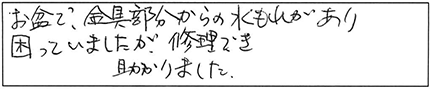 お盆で、金具部分からの水もれがあり
困っていましたが、修理でき
助かりました.